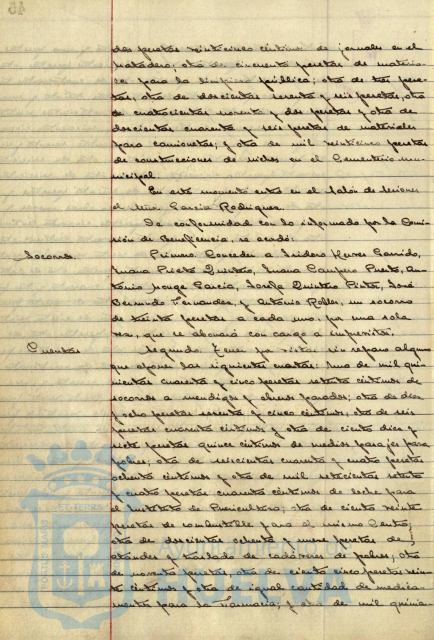 dos pesetas veinticinco céntimos de jornales en el
matadero; otra de cincuenta pesetas de material
para la limpieza pública; otra de tres pese-
tas, otra de doscientas setenta y seis pesetas, otra
de cuatrocientas noventa y dos pesetas y otra de
doscientas cuarenta y seis pesetas de materiales
para camionetas; y otra de mil veinticinco pesetas
de construcciones de nichos en el Cementerio mu-
nicipal.
En este momento entra en el salón de sesiones
el señor García Rodríguez.
De conformidad con lo informado por la Comi-
sión de Beneficencia, se acordó:
Socorros. Primero. Conceder a Isidoro Garrido,
Juana Prieto Quintero, Juana Campero Prieto, An-
tonio Monge García, Josefa Quintero Pinto, José
Bermudo Fernández, y Antonio Robles, un socorro
de treinta pesetas a cada uno, por una sola
vez, que se abonará con cargo a imprevistos.
Cuentas Segundo. sin reparo alguno
que oponer las siguientes cuentas: Una de mil qui-
nientas cuarenta y cinco pesetas setenta céntimos de
socorros a mendigos y obreros parados; otra de diez
y ocho pesetas sesenta y cinco céntimos, otra de seis
pesetas cuarenta céntimos y otra de ciento diez y
siete pesetas quince céntimos de medios pasajes para
pobres; otra de seiscientas cuarenta y cuatro pesetas
ochenta céntimos y otra de mil setecientas setenta
y cuatro pesetas cuarenta céntimos de leche para
el Instituto de Puericultura; otra de ciento veinte
pesetas de combustible para el mismo Centro;
otra de doscientas ochenta y nueve pesetas de
ataudes y traslado de cadáveres de pobres; otra
de noventa pesetas, otra de ciento cinco pesetas vein-
te céntimos y otra de igual cantidad de medica-
mentos para la Farmacia; y otra de mil quinien-